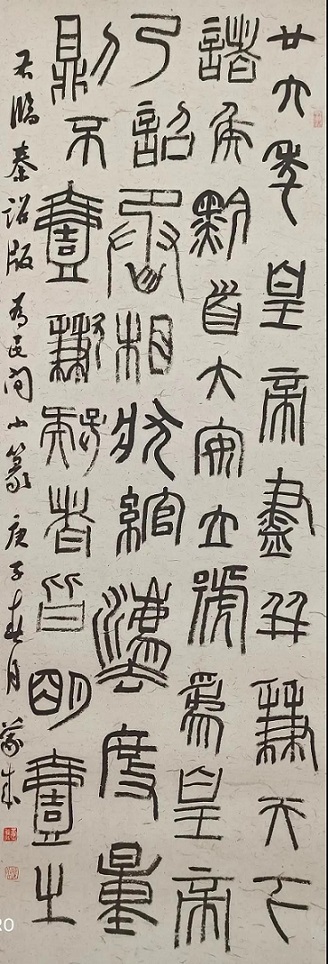 廿六年皇帝盡并兼天下
諸侯黔首大安立號為皇帝
乃詔丞相狀綰灋度量
則不壹歉疑者皆明壹之
右臨秦詔版為民間小篆庚子春月
RO